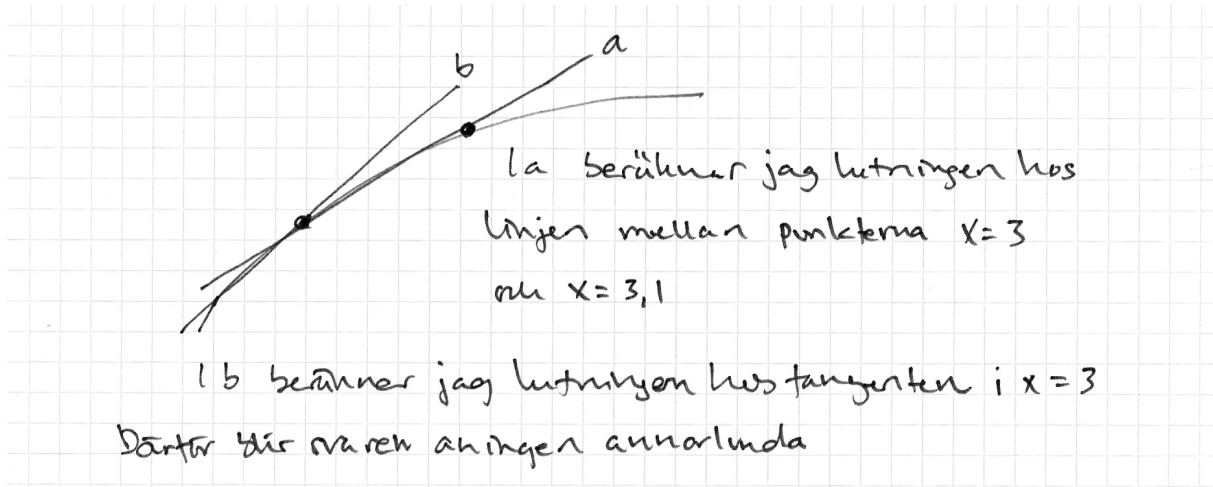 a
b
Ia beräknar jag lutningen hos
linjen mellan punkterna x=3
och x=3,1
I b beräknar jag lutningen hos tangenten i x=3
Därför blir svaren aningen annorlunda